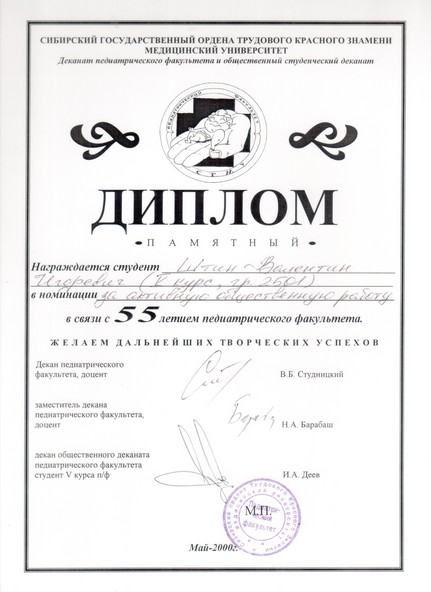 СИБИРСКИЙ ГОСУДАРСТВЕННЫЙ ОРДЕНА ТРУДОВОГО КРАСНОГО ЗНАМЕНИ
МЕДИЦИНСКИЙ УНИВЕРСИТЕТ
Деканат педиатрического факультета и общественный студенческий деканат
ПЕДИАТРИЧЕСКИЙ ФАКУЛЬТЕТ
СГМУ
ДИПЛОМ
•ПАМЯТНЫЙ•
Награждается студент Штин Валентин
Игоревич (V курс, гр. 2501)
в номинации за активную общественную работу
в связи с 55 летием педиатрического факультета.
ЖЕЛАЕМ ДАЛЬНЕЙШИХ ТВОРЧЕСКИХ УСПЕХОВ
Декан педиатрического
факультета, доцент
В.Б. Студницкий
заместитель декана
педиатрического факультета,
доцент
Н.А. Барабаш
декан общественного деканата
педиатрического факультета
студент V курса п/ф
И.А. Деев
М.П.
Педиатри-
ческий
факультет
Май-2000г.